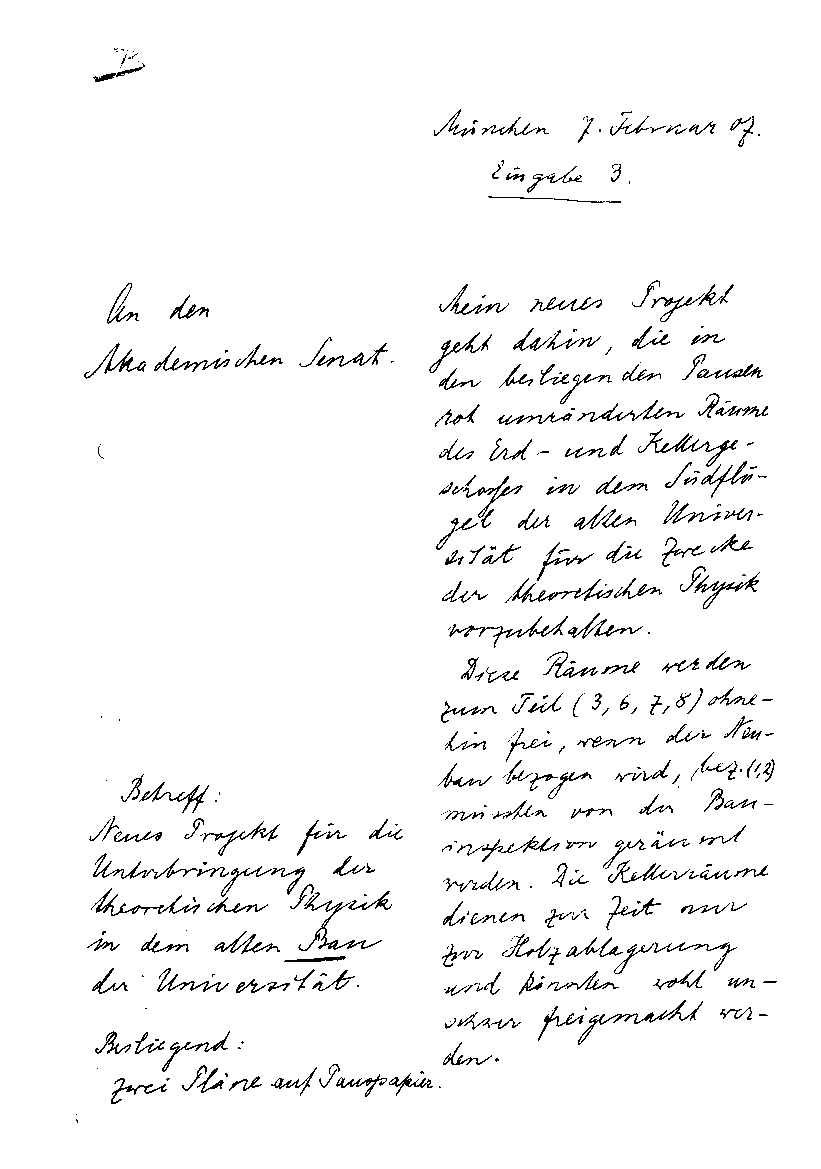 B
München 7. Februar 07.
Eingabe 3.
An den
Akademischen Senat.
Betreff:
Neues Projekt für die
Unterbringung der
theoretischen Physik
in dem alten Bau
der Universität.
Beiliegend:
zwei Pläne auf Pauspapier.
Mein neues Projekt
geht dahin, die in
den beiliegenden Pausen
rot umränderten Räume
des Erd- und Kellerge-
schosses in dem Südflü-
gel der alten Univer-
sität für die Zwecke
der theoretischen Physik
vorzubehalten.
Diese Räume werden
zum Teil (3, 6, 7, 8) ohne-
hin frei, wenn der Neu-
bau bezogen wird, bez. (1,2)
müssten von der Bau-
inspektion geräumt
werden. Die Kellerräume
dienen zur Zeit nur
zur Holzablagerung
und könnten wohl un-
schwer freigemacht wer-
den.